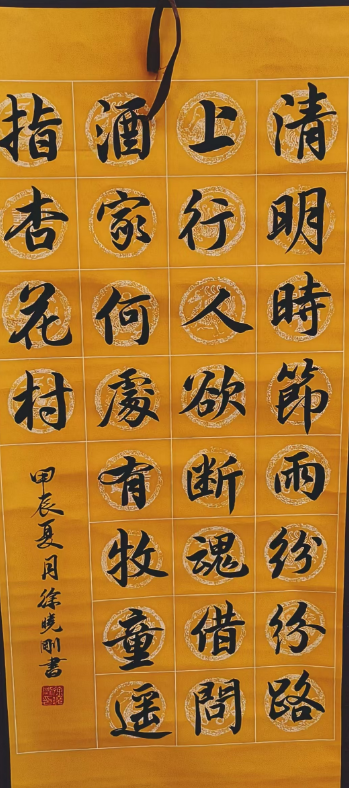 清明時節雨紛紛路
上行人欲断魂借問
酒家何處有牧童遥
指杏花村
甲辰夏月徐曉剛書